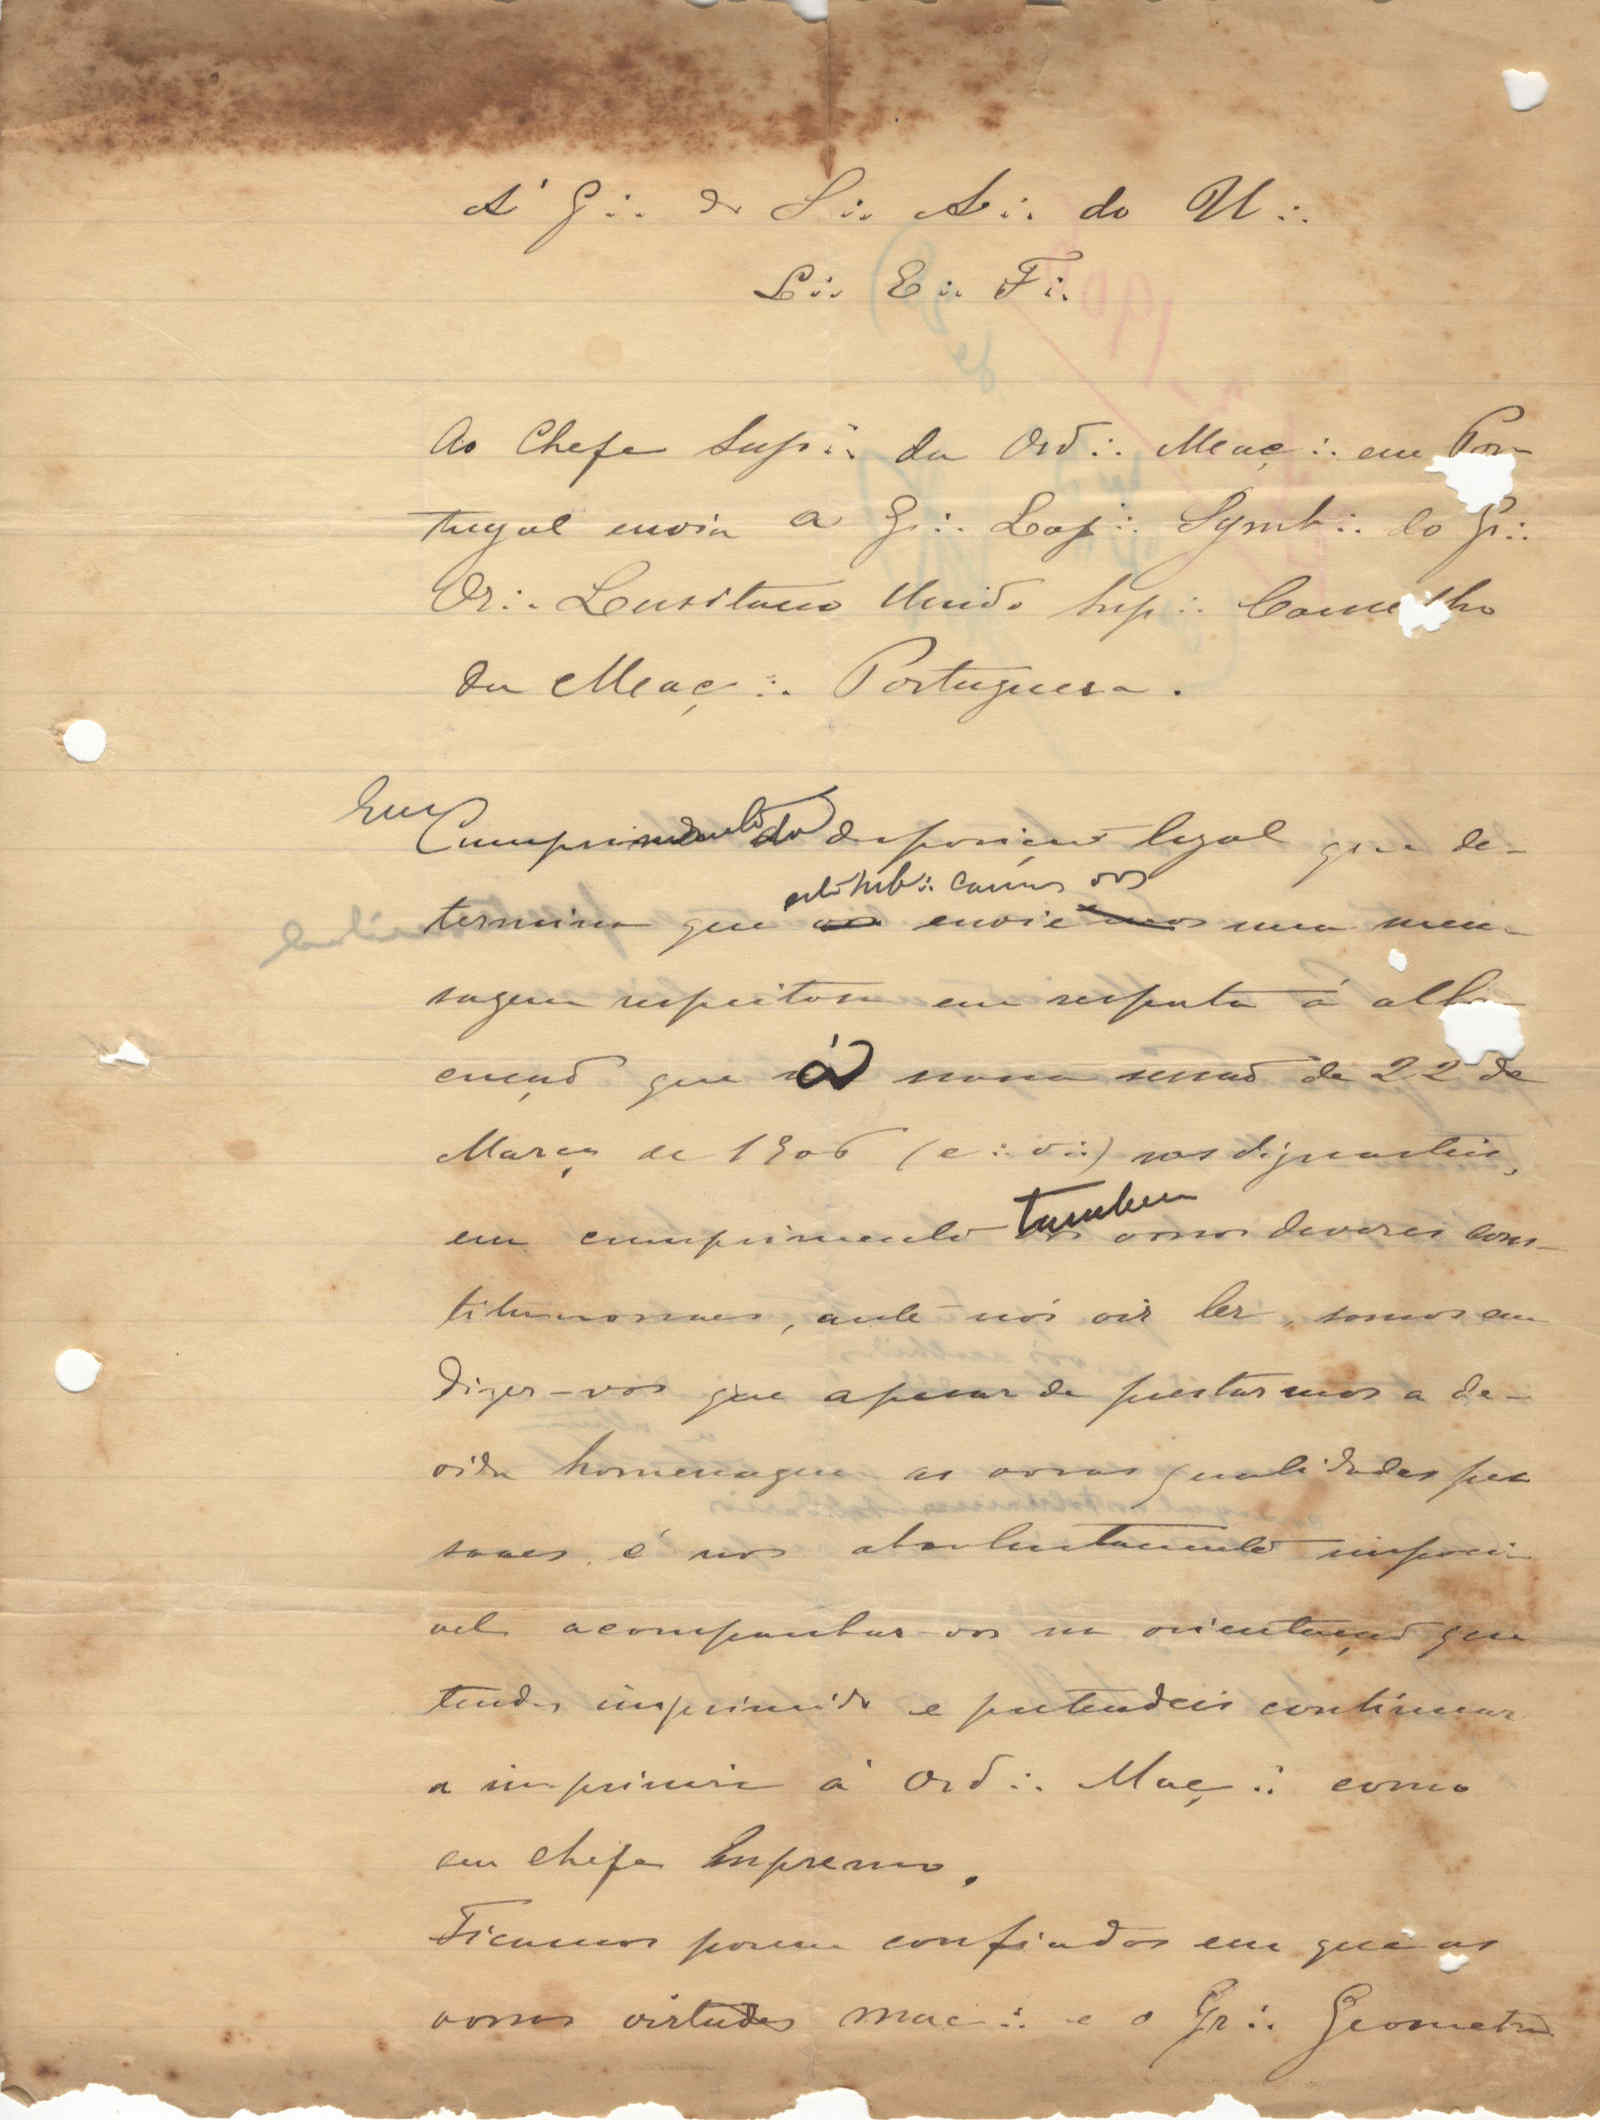 Á G∴ do S∴ A∴ do U∴
L∴ E∴ F∴
Ao Chefe Sup∴ da Ord∴ Maç∴ em Por
tugal envia a Gr∴ Loj∴ Symb∴ do Gr∴
Or∴ Lusitano Unido Sup∴ Conselho
da Maç∴ Portugueza.
Em Cumprimento da disposição legal que de-
termina que esta Subl∴ Cam∴ vos envie uma men-
sagem respeitosa em resposta á allo
cução que á nossa sessão de 22 de
Março de 1906 (e∴ v∴) vos dignasteis,
em cumprimento tambem vossos deveres cons-
titucionaes, ante nós vir ler, somos em
dizer-vos que apesar de prestarmos a de-
vida homenagem as vossas qualidades pes
soaes, é nos absolutamente impossi
vel acompanhar-vos na orientação que
tendes imprimido e pretendeis continuar
a imprimir á Ord∴ Maç∴ como
seu chefe Supremo.
Ficamos porem confiados em que as
vossas virtudes maç∴ e o Gr∴ Geometra